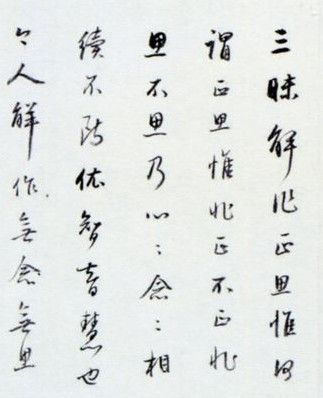 三昧解作正思惟何
謂正思惟非正不正非
思不思乃心心念念相
續不斷依智音慧也
今人解作無念無思